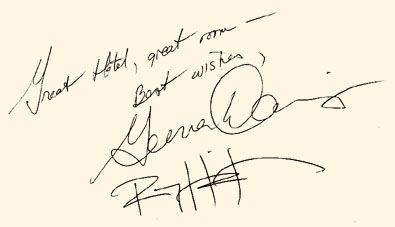 Great Hotel, great room —
Best wishes,
Geena Davis